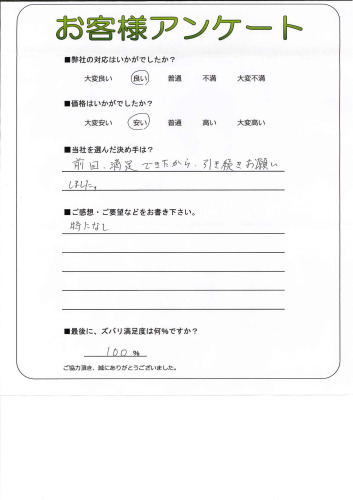 お客様アンケート
■弊社の対応はいかがでしたか？
大変良い 良い 普通 不満 大変不満
■価格はいかがでしたか？
大変安い 安い 普通 高い 大変高い
■当社を選んだ決め手は？
前回、満足できたから、引き続きお願い
しました。
■ご感想・ご要望などをお書き下さい。
特になし
■最後に、ズバリ満足度は何％ですか？
100 %
ご協力頂き、誠にありがとうございました。